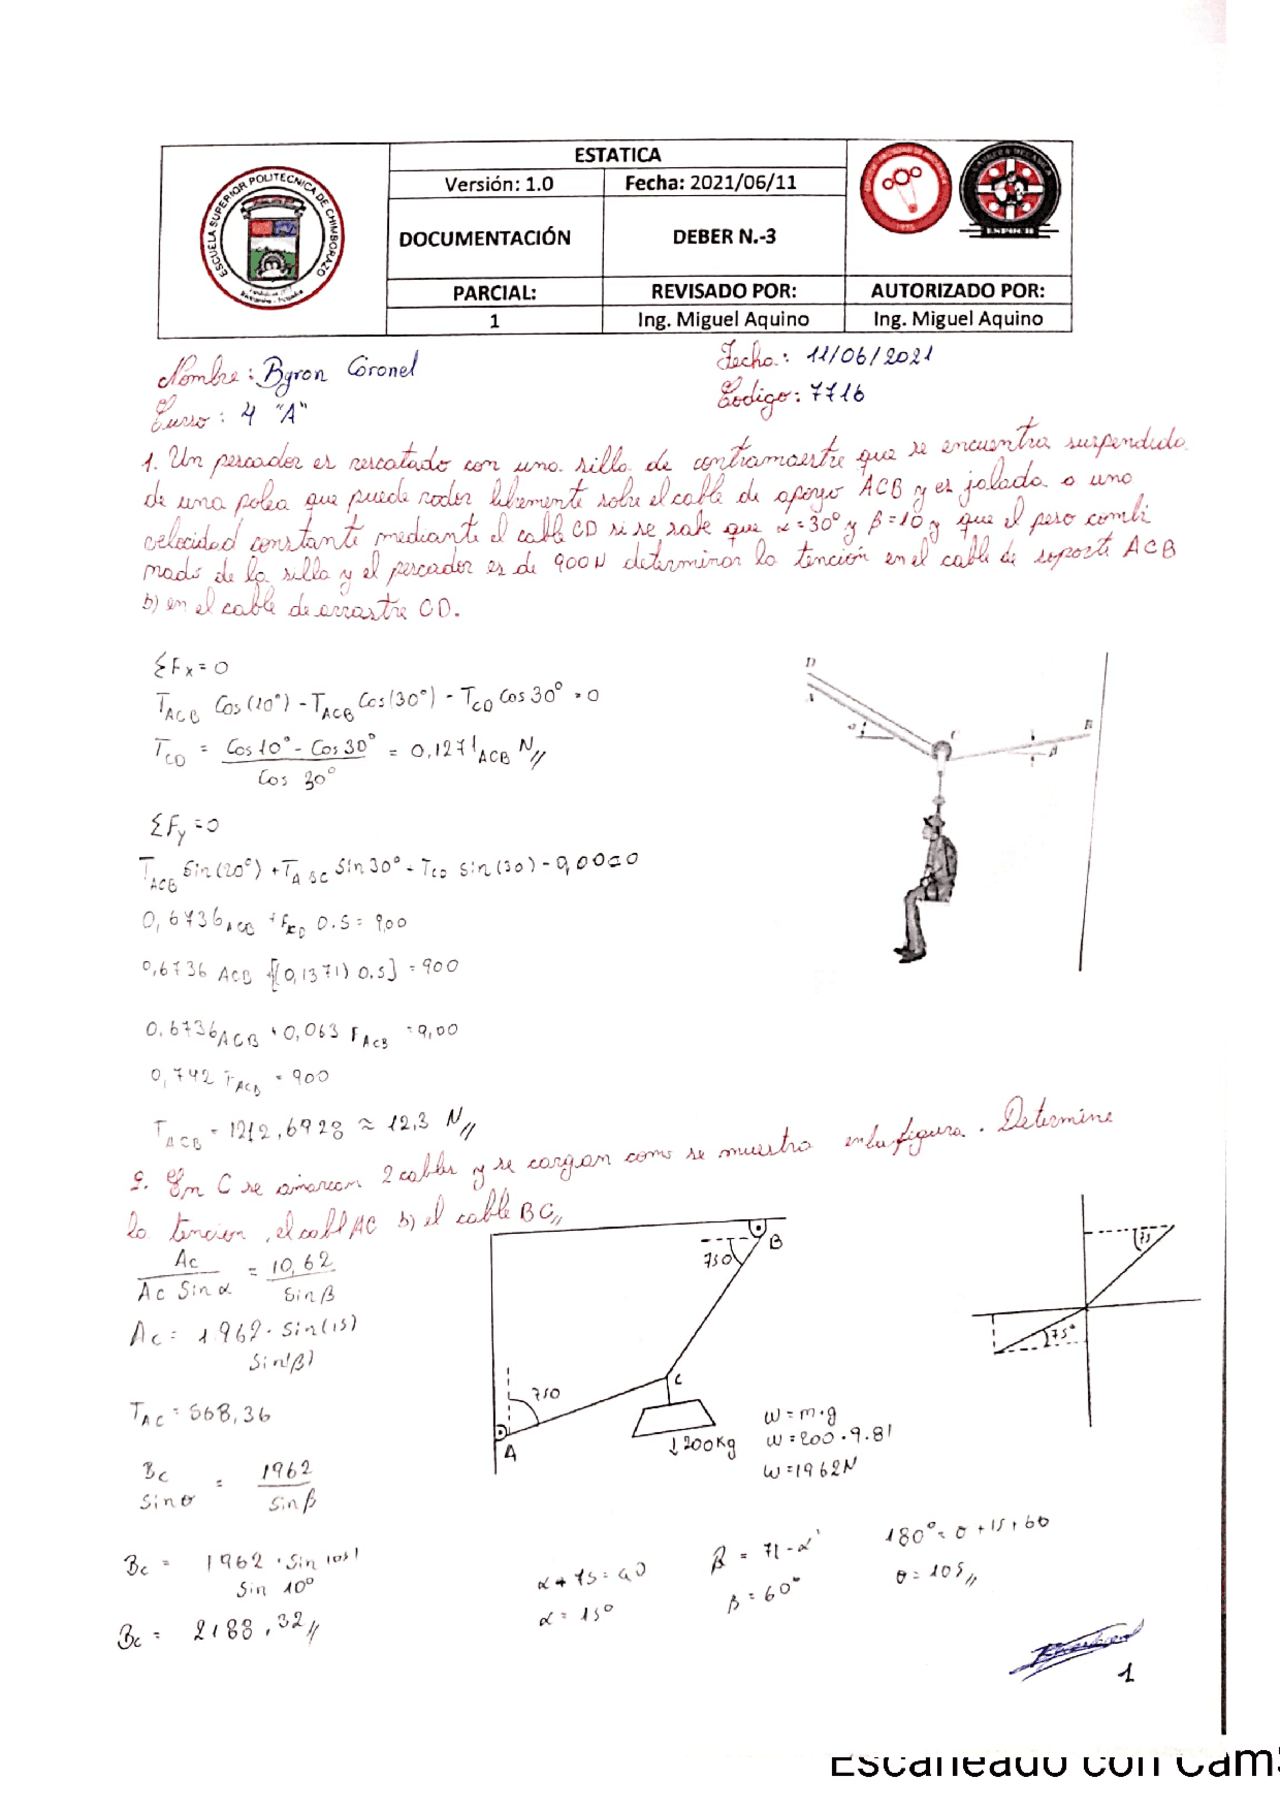 ESTATICA
Versión: 1.0 Fecha: 2021/06/11
DOCUMENTACIÓN DEBER N.-3
PARCIAL: REVISADO POR: AUTORIZADO POR:
1 Ing. Miguel Aquino Ing. Miguel Aquino
ESCUELA SUPERIOR POLITECNICA DE CHIMBORAZO
Nombre: Byron Coronel
Fecha: 11/06/2021
Curso: 4 "A"
Codigo: 7716
1. Un pescador es rescatado con una silla de contramaestre que se encuentra suspendida
de una polea que puede rodar libremente sobre el cable de apoyo ACB y es jalada a una
velocidad constante mediante el cable CD si se sabe que α=30° y β=10 y que el peso combi
nado de la silla y el pescador es de 900N determinar la tención en el cable de soporte ACB
b) en el cable de arrastre CD.
ΣFx=0
T_ACB Cos(10°) - T_ACB Cos(30°) - T_CD Cos 30° = 0
T_CD = (Cos 10° - Cos 30°) / Cos 30° = 0,1271_ACB N//
ΣFy=0
T_ACB Sin(20°) + T_ABC Sin 30° + T_CD Sin(30) - 9,00=0
0,6736_ACB + F_CD 0.5 = 900
0,6736 ACB [(0,1371) 0.5] = 900
0.6736_ACB + 0,063 F_ACB = 9,00
0,742 F_ACB = 900
T_ACB = 1212,6928 ≈ 12,3 N//
D
A
C
B
α
β
2. En C se amarran 2 cables y se cargan como se muestra en la figura. Determine
la tencion, el cabl AC b) el cable BC//
Ac / Ac Sin α = 10,62 / Sin β
Ac = 1.962 · Sin(15) / Sin(β)
T_AC = 568,36
Bc / Sin θ = 1962 / Sin β
Bc = 1962 · Sin 105 / Sin 10°
Bc = 2188,32//
750
B
C
750
A
↓200Kg
w = m·g
w = 200·9.81
w = 1962N
75
75°
α + 75 = 90
α = 15°
β = 71 - α
β = 60°
180° = θ + 15 + 60
θ = 105//
1
Escaneado con CamS